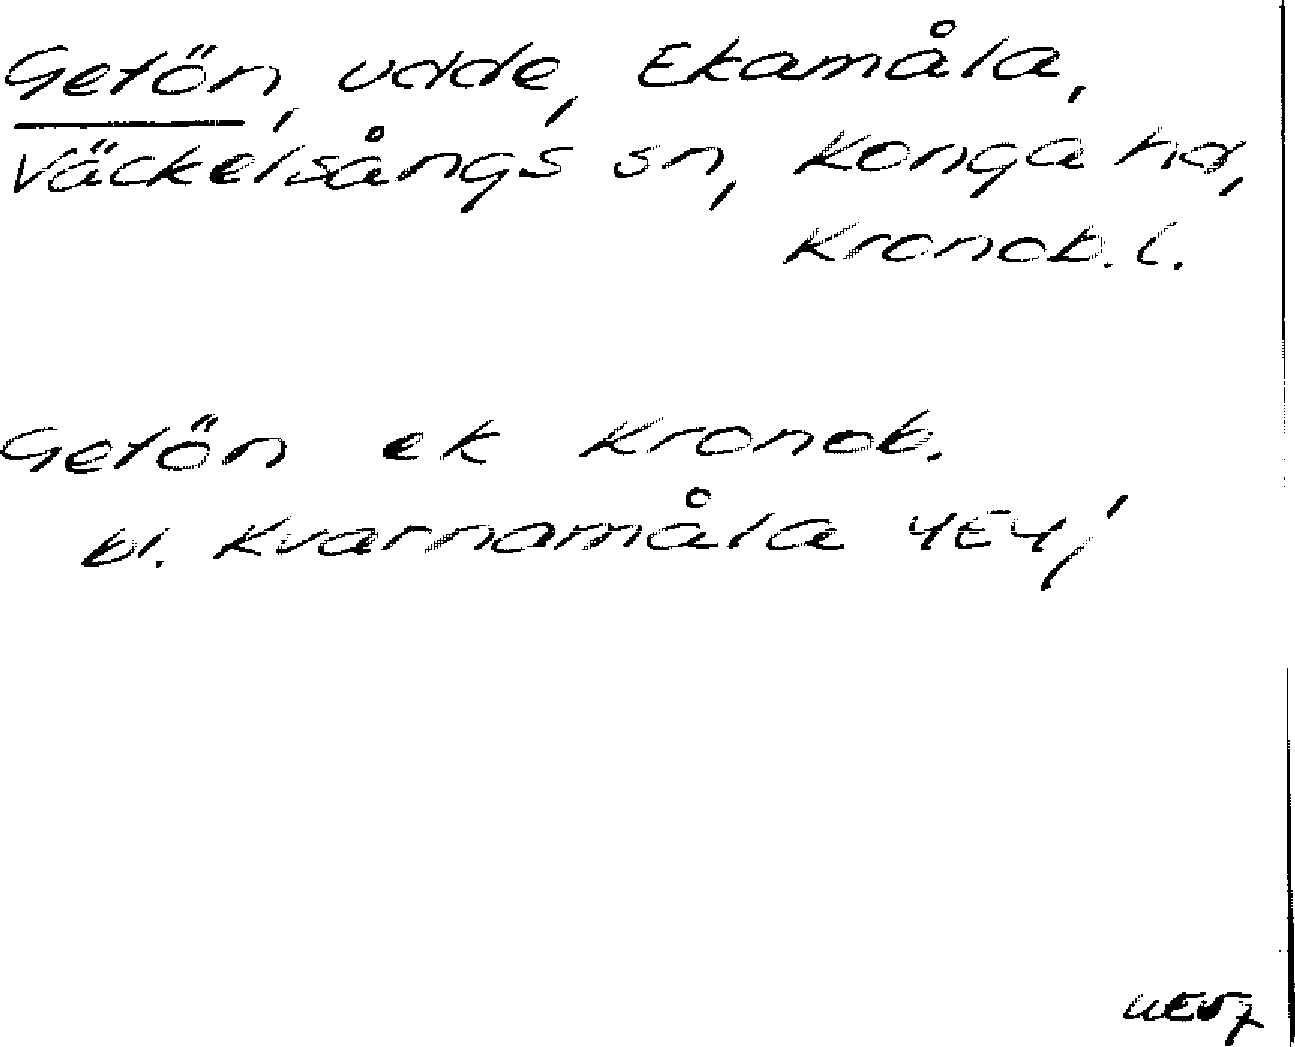 Getön, udde, Ekamåla,
Väckelsångs sn, Konga hd,
Kronob. l.
Getön ek Kronob.
bl. Kvarnamåla 4E4,